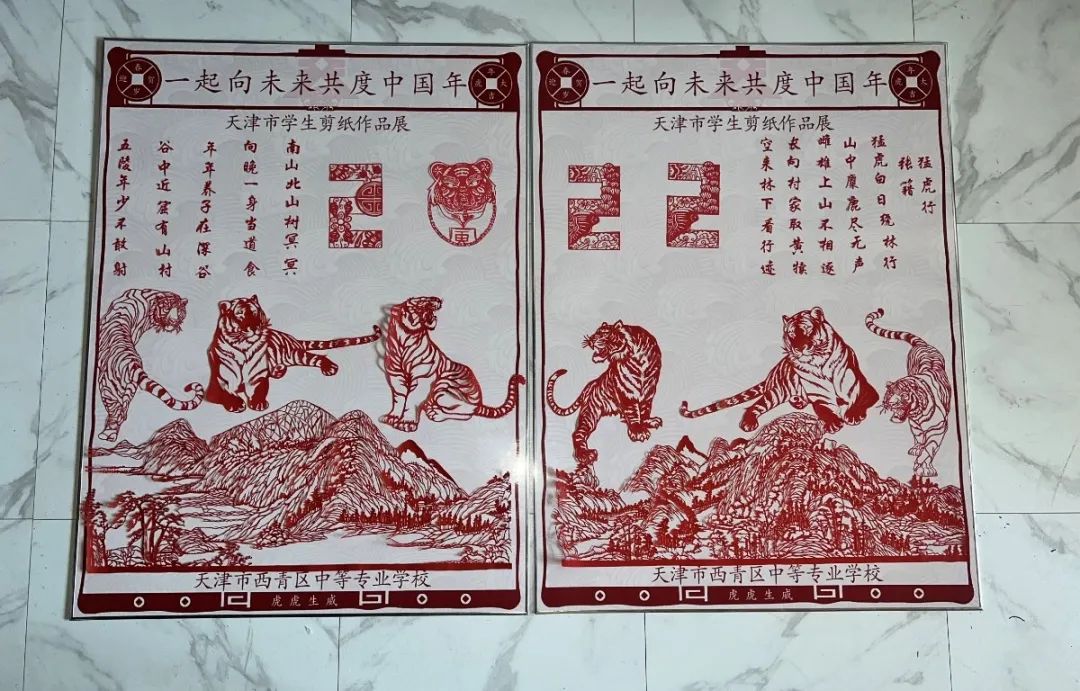 迎春贺岁
一起向未来共度中国年
虎年大吉
天津市学生剪纸作品展
2
寅
南山北山树冥冥
向晚一身当道食
年年养子在深谷
谷中近窟有山村
五陵年少不敢射
天津市西青区中等专业学校
虎虎生威
迎春贺岁
一起向未来共度中国年
虎年大吉
天津市学生剪纸作品展
22
猛虎行
张籍
猛虎白日绕林行
山中麋鹿尽无声
雌雄上山不相逐
长向村家取黄犊
空来林下看行迹
天津市西青区中等专业学校
虎虎生威